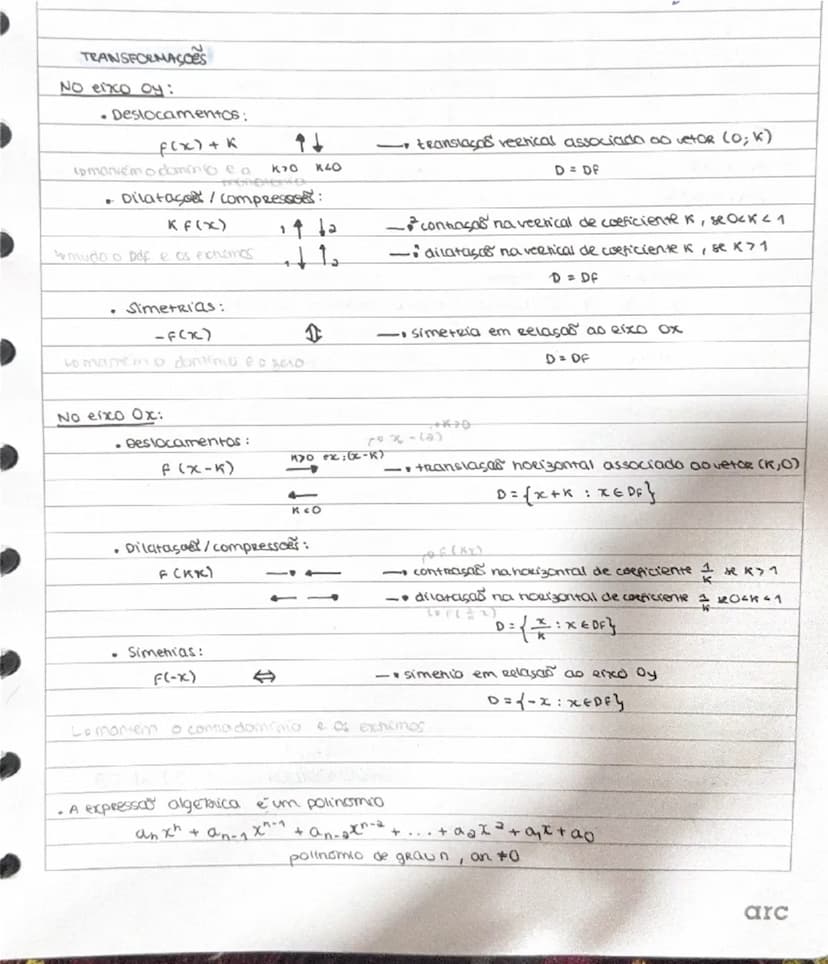 TRANSFORMAÇÕES
NO eixo Oy:
• Deslocamentos:
f(x) + K ↑ ↓ → translação vertical associado ao vetor (0; K)
↳ mantém o domínio e a monotonia K>0 K<0 D = DF
• Dilatações / compressões:
K F(x) 1 ↑ ↓ 2 →² contração na vertical de coeficiente K, se 0<K<1
↳ muda o Ddf e os extremos 1 ↓ ↑ 2 →¹ dilatação na vertical de coeficiente K, se K>1
D = DF
• Simetrias:
-F(x) ⇕ → simetria em relação ao eixo Ox
↳ mantém o domínio e o zero D = DF
NO eixo Ox:
+K>0
• Deslocamentos: x - (2)
F (x-K) K>0 ex: (x-K) → → translação horizontal associado ao vetor (K, 0)
← K<0 D = {x+K : x ∈ DF}
• Dilatações / compressões: F(Kx)
F(Kx) → ← → contração na horizontal de coeficiente 1/K se K>1
← → → dilatação na horizontal de coeficiente 1/K se 0<K<1
D = {x/K : x ∈ DF}
• Simetrias:
F(-x) ⇔ → simetria em relação ao eixo Oy
D = {-x : x ∈ DF}
↳ mantém o contradomínio e os extremos
• A expressão algébrica é um polinómio
aₙxⁿ + aₙ₋₁xⁿ⁻¹ + aₙ₋₂xⁿ⁻² + ... + a₂x² + a₁x + a₀
polinómio de grau n, an ≠ 0
arc